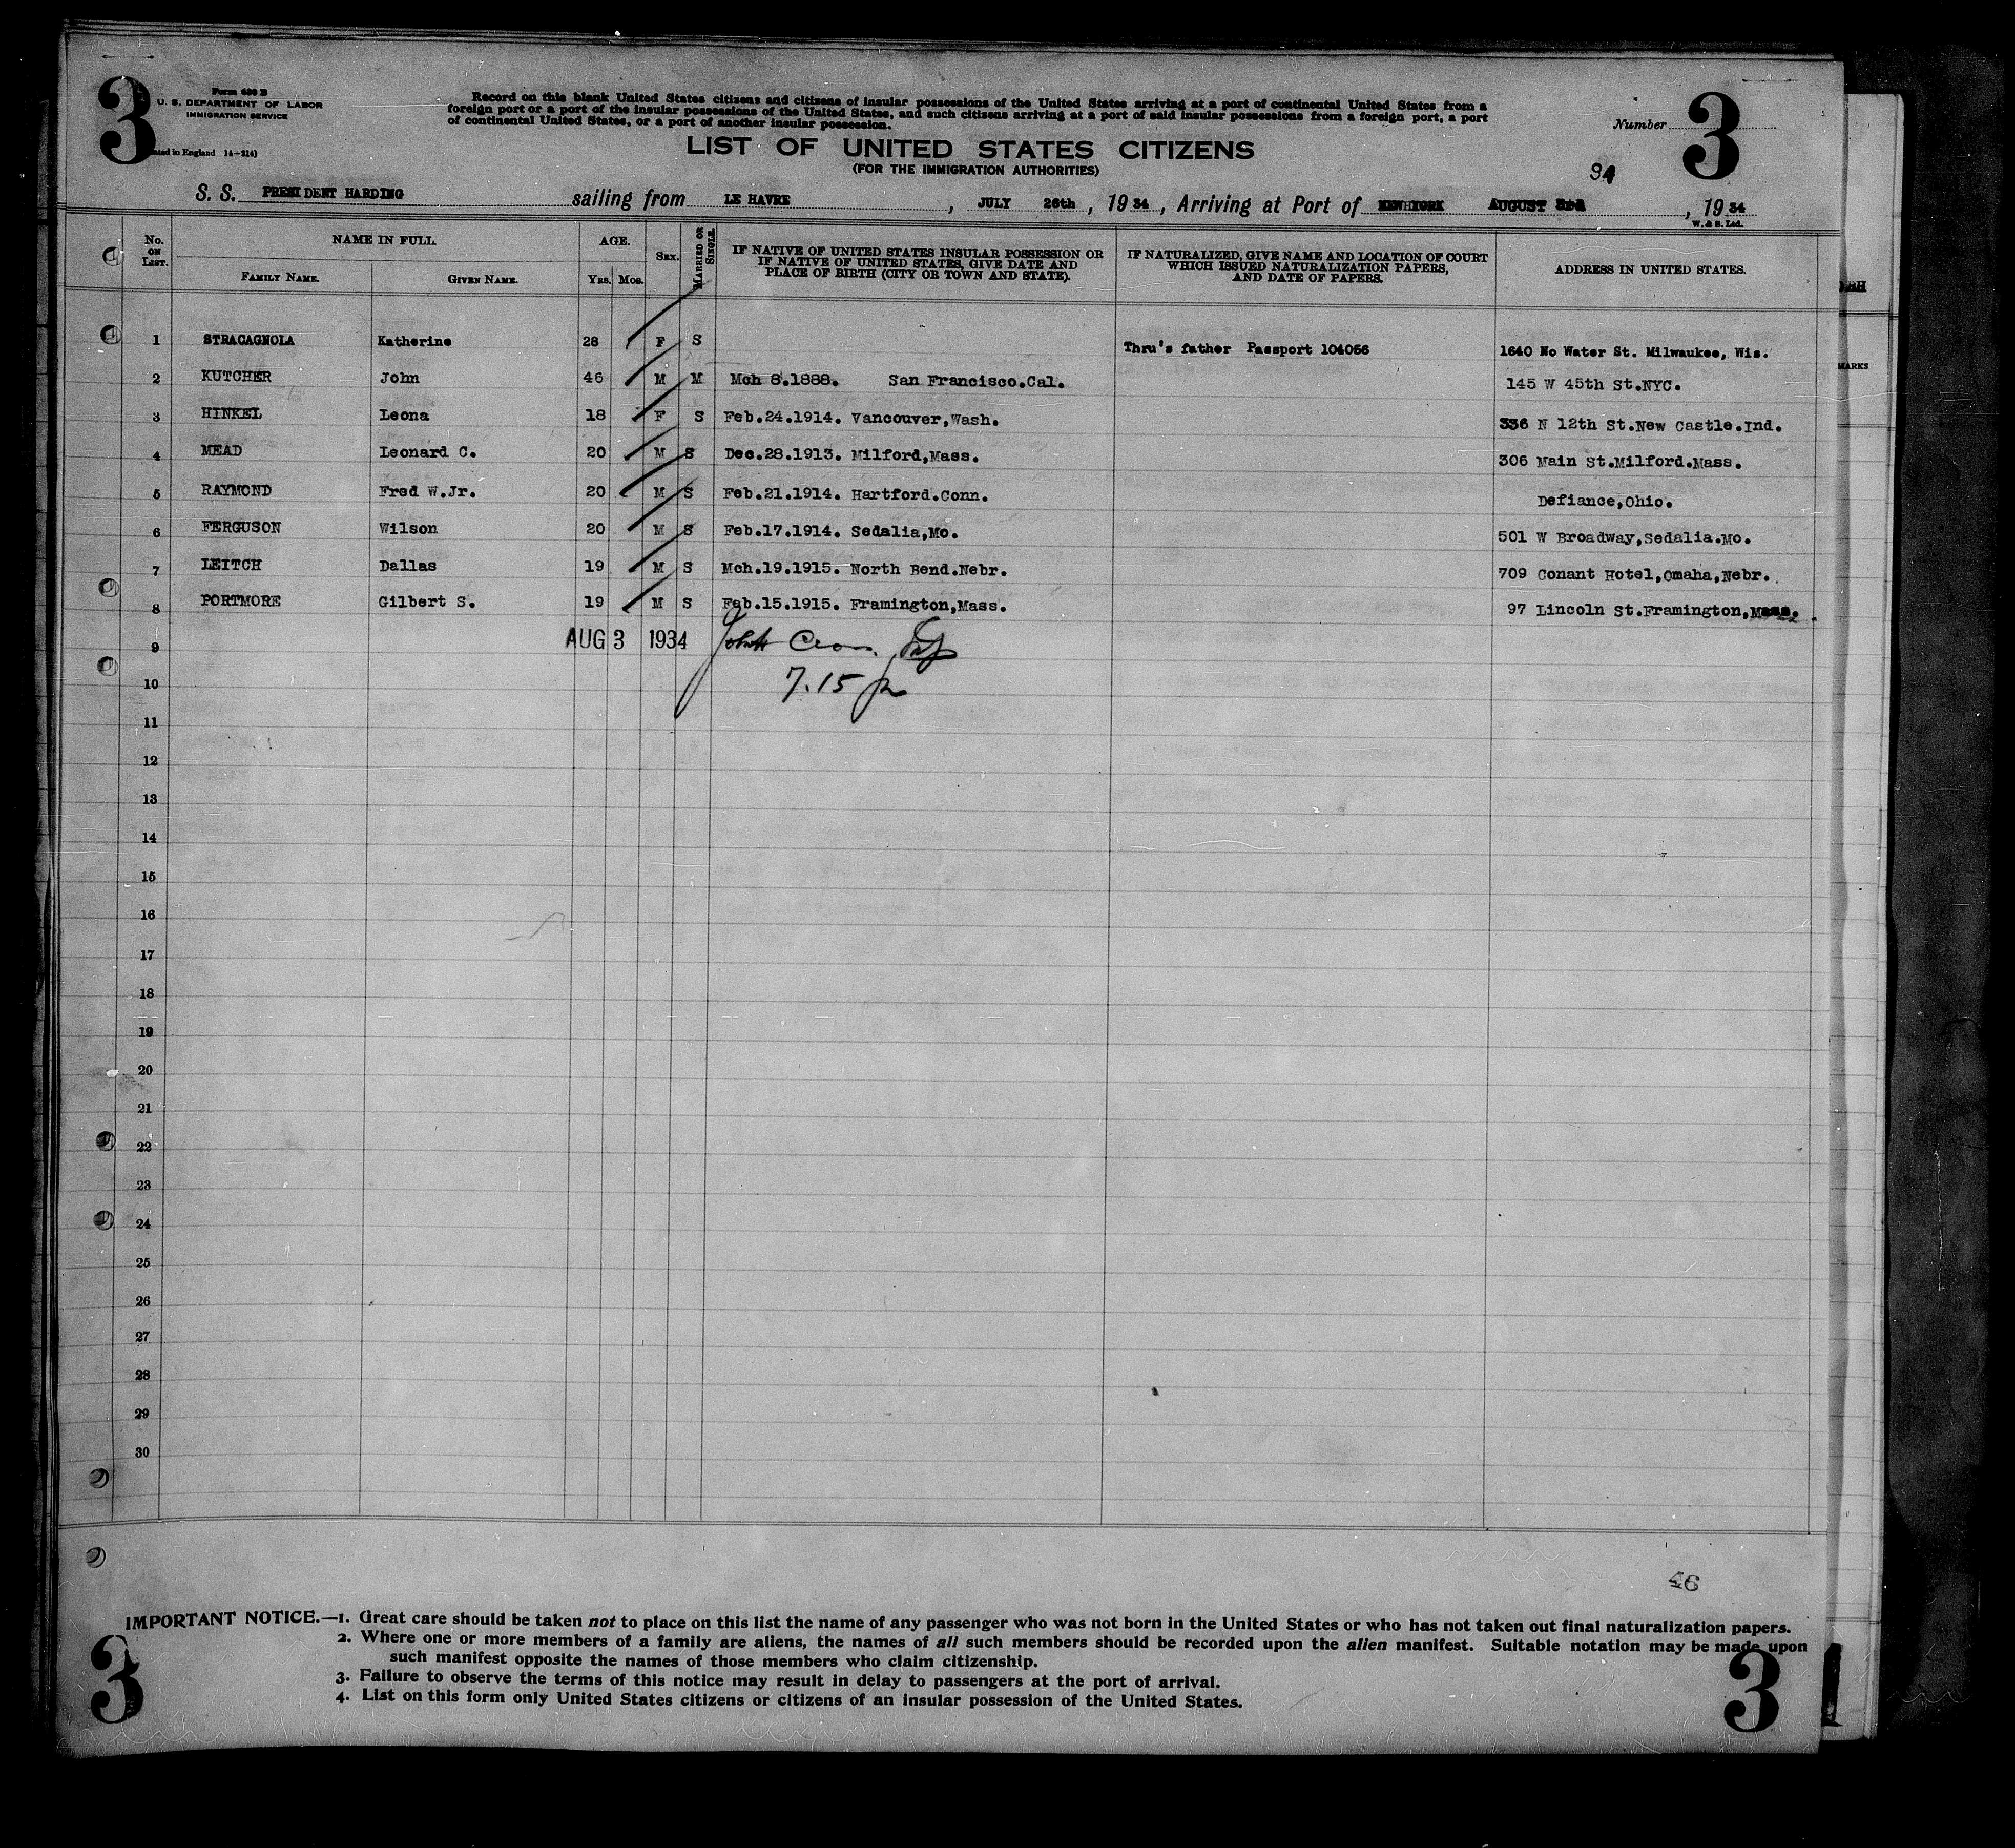 3 Form 630 B 3
U. S. DEPARTMENT OF LABOR
IMMIGRATION SERVICE
ted in England 14-214)
Record on this blank United States citizens and citizens of insular possessions of the United States arriving at a port of continental United States from a
foreign port or a port of the insular possessions of the United States, and such citizens arriving at a port of said insular possessions from a foreign port, a port
of continental United States, or a port of another insular possession.
Number
LIST OF UNITED STATES CITIZENS
(FOR THE IMMIGRATION AUTHORITIES)
94
S. S. PRESIDENT HARDING sailing from LE HAVRE, JULY 26th, 1934, Arriving at Port of NEW YORK AUGUST 3rd, 1934
W. & S. Ltd.
No. ON LIST. NAME IN FULL. FAMILY NAME. GIVEN NAME. AGE. YRS. MOS. SEX. MARRIED OR SINGLE. IF NATIVE OF UNITED STATES INSULAR POSSESSION OR IF NATIVE OF UNITED STATES, GIVE DATE AND PLACE OF BIRTH (CITY OR TOWN AND STATE). IF NATURALIZED, GIVE NAME AND LOCATION OF COURT WHICH ISSUED NATURALIZATION PAPERS, AND DATE OF PAPERS. ADDRESS IN UNITED STATES.
1 STRACAGNOLA Katherine 28 F S Thru's father Passport 104056 1640 No Water St. Milwaukee, Wis.
2 KUTCHER John 46 M M Mch 8.1888. San Francisco.Cal. 145 W 45th St.NYC.
MARKS
3 HINKEL Leona 18 F S Feb.24.1914. Vancouver,Wash. 336 N 12th St.New Castle.Ind.
4 MEAD Leonard C. 20 M S Dec.28.1913. Milford,Mass. 306 Main St.Milford.Mass.
5 RAYMOND Fred W.Jr. 20 M S Feb.21.1914. Hartford.Conn. Defiance,Ohio.
6 FERGUSON Wilson 20 M S Feb.17.1914. Sedalia,Mo. 501 W Broadway,Sedalia.Mo.
7 LEITCH Dallas 19 M S Mch.19.1915. North Bend.Nebr. 709 Conant Hotel,Omaha,Nebr.
8 PORTMORE Gilbert S. 19 M S Feb.15.1915. Framington,Mass. 97 Lincoln St.Framington,Mass.
9 AUG 3 1934
10 7.15
11
12
13
14
15
16
17
18
19
20
21
22
23
24
25
26
27
28
29
30
46
IMPORTANT NOTICE.—1. Great care should be taken not to place on this list the name of any passenger who was not born in the United States or who has not taken out final naturalization papers.
2. Where one or more members of a family are aliens, the names of all such members should be recorded upon the alien manifest. Suitable notation may be made upon
such manifest opposite the names of those members who claim citizenship.
3. Failure to observe the terms of this notice may result in delay to passengers at the port of arrival.
4. List on this form only United States citizens or citizens of an insular possession of the United States.
3 3 1